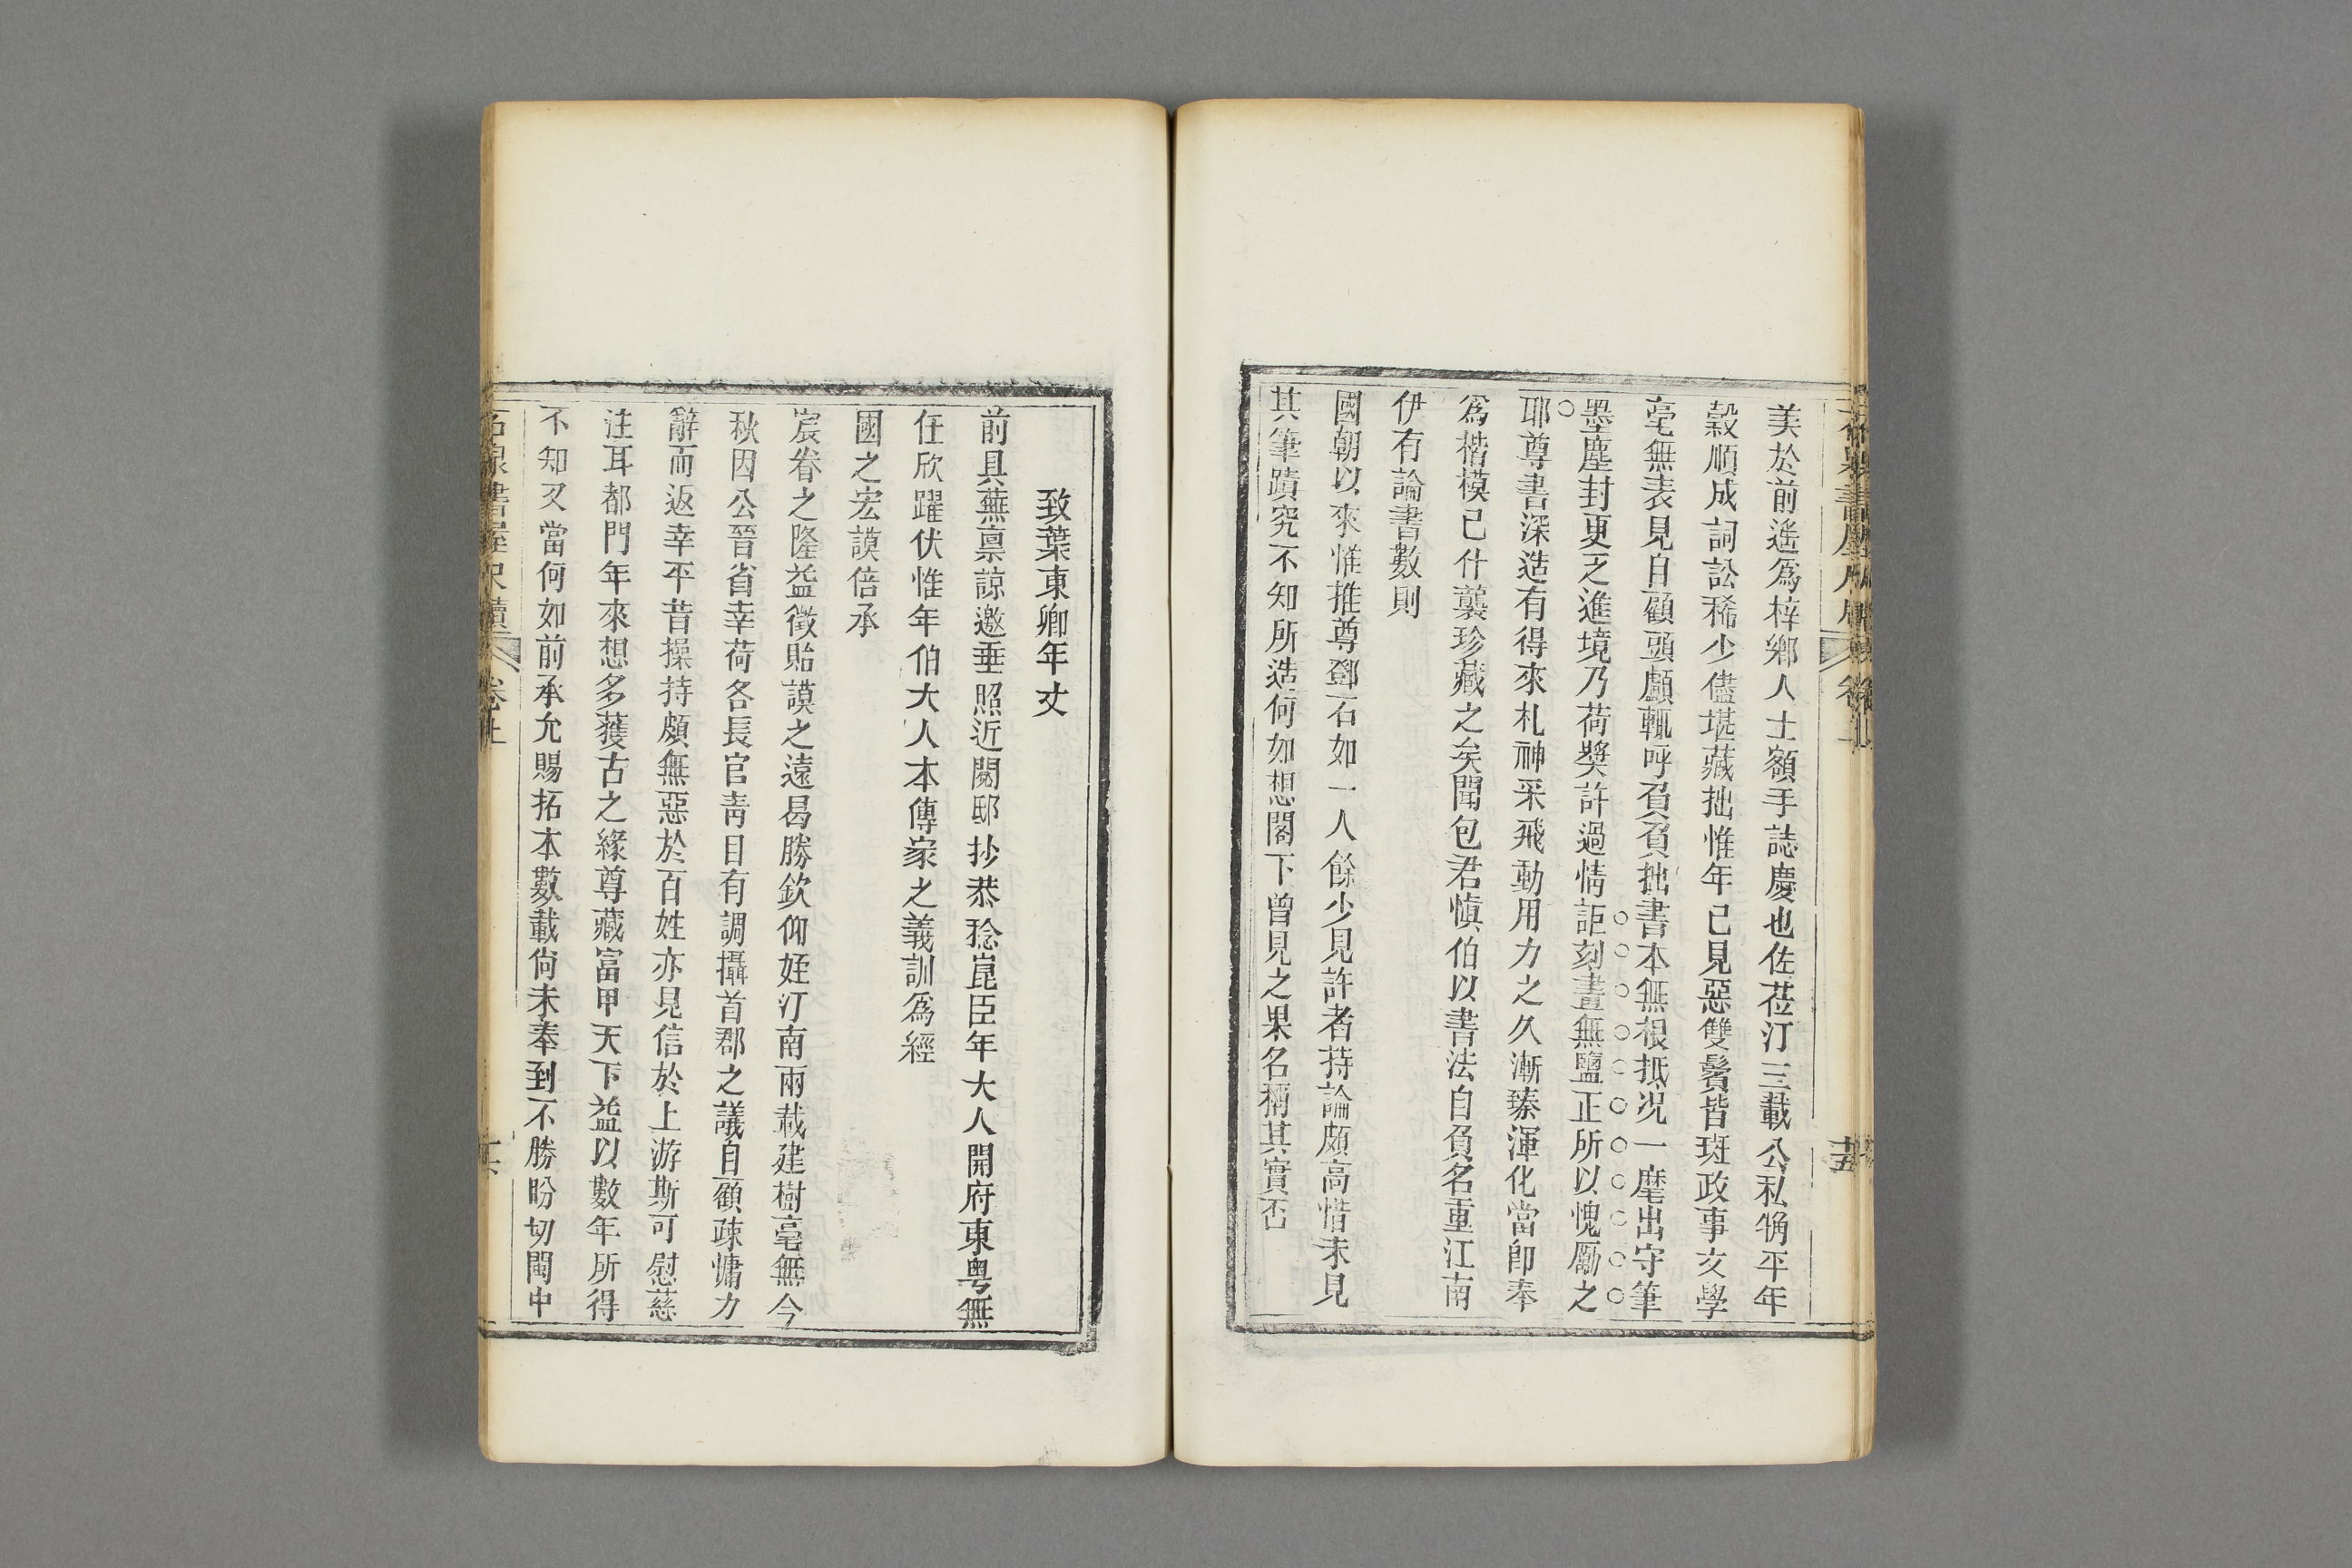 美於前遙爲梓鄉人士額手誌慶也佐莅汀三載公私觕平年
穀順成詞訟稀少儘堪藏拙惟年已見惡雙鬢皆斑政事文學
毫無表見自顧頭顱輒呼負負拙書本無根抵况一麾出守筆
墨塵封更乏進境乃荷獎許過情詎刻畫無鹽正所以愧勵之
耶尊書深造有得來札神采飛動用力之久漸臻渾化當卽奉
爲楷模已什襲珍藏之矣聞包君愼伯以書法自負名重江南
伊有論書數則
國朝以來惟推尊鄧石如一人餘少見許者持論頗高惜未見
其筆蹟究不知所造何如想閣下曾見之果名稱其實否
致葉東卿年丈
前具蕪禀諒邀垂照近閱邸抄恭稔崑臣年大人開府東粤無
任欣躍伏惟年伯大人本傳家之義訓爲經
國之宏謨倍承
宸眷之隆益徵貽謨之遠曷勝欽仰姪汀南兩載建樹毫無今
秋因公晉省幸荷各長官靑目有調攝首郡之議自顧疎慵力
辭而返幸平昔操持頗無惡於百姓亦見信於上游斯可慰慈
注耳都門年來想多獲古之緣尊藏富甲天下益以數年所得
不知又當何如前承允賜拓本數載尙未奉到不勝盼切閩中
石泉書屋尺牘 卷上